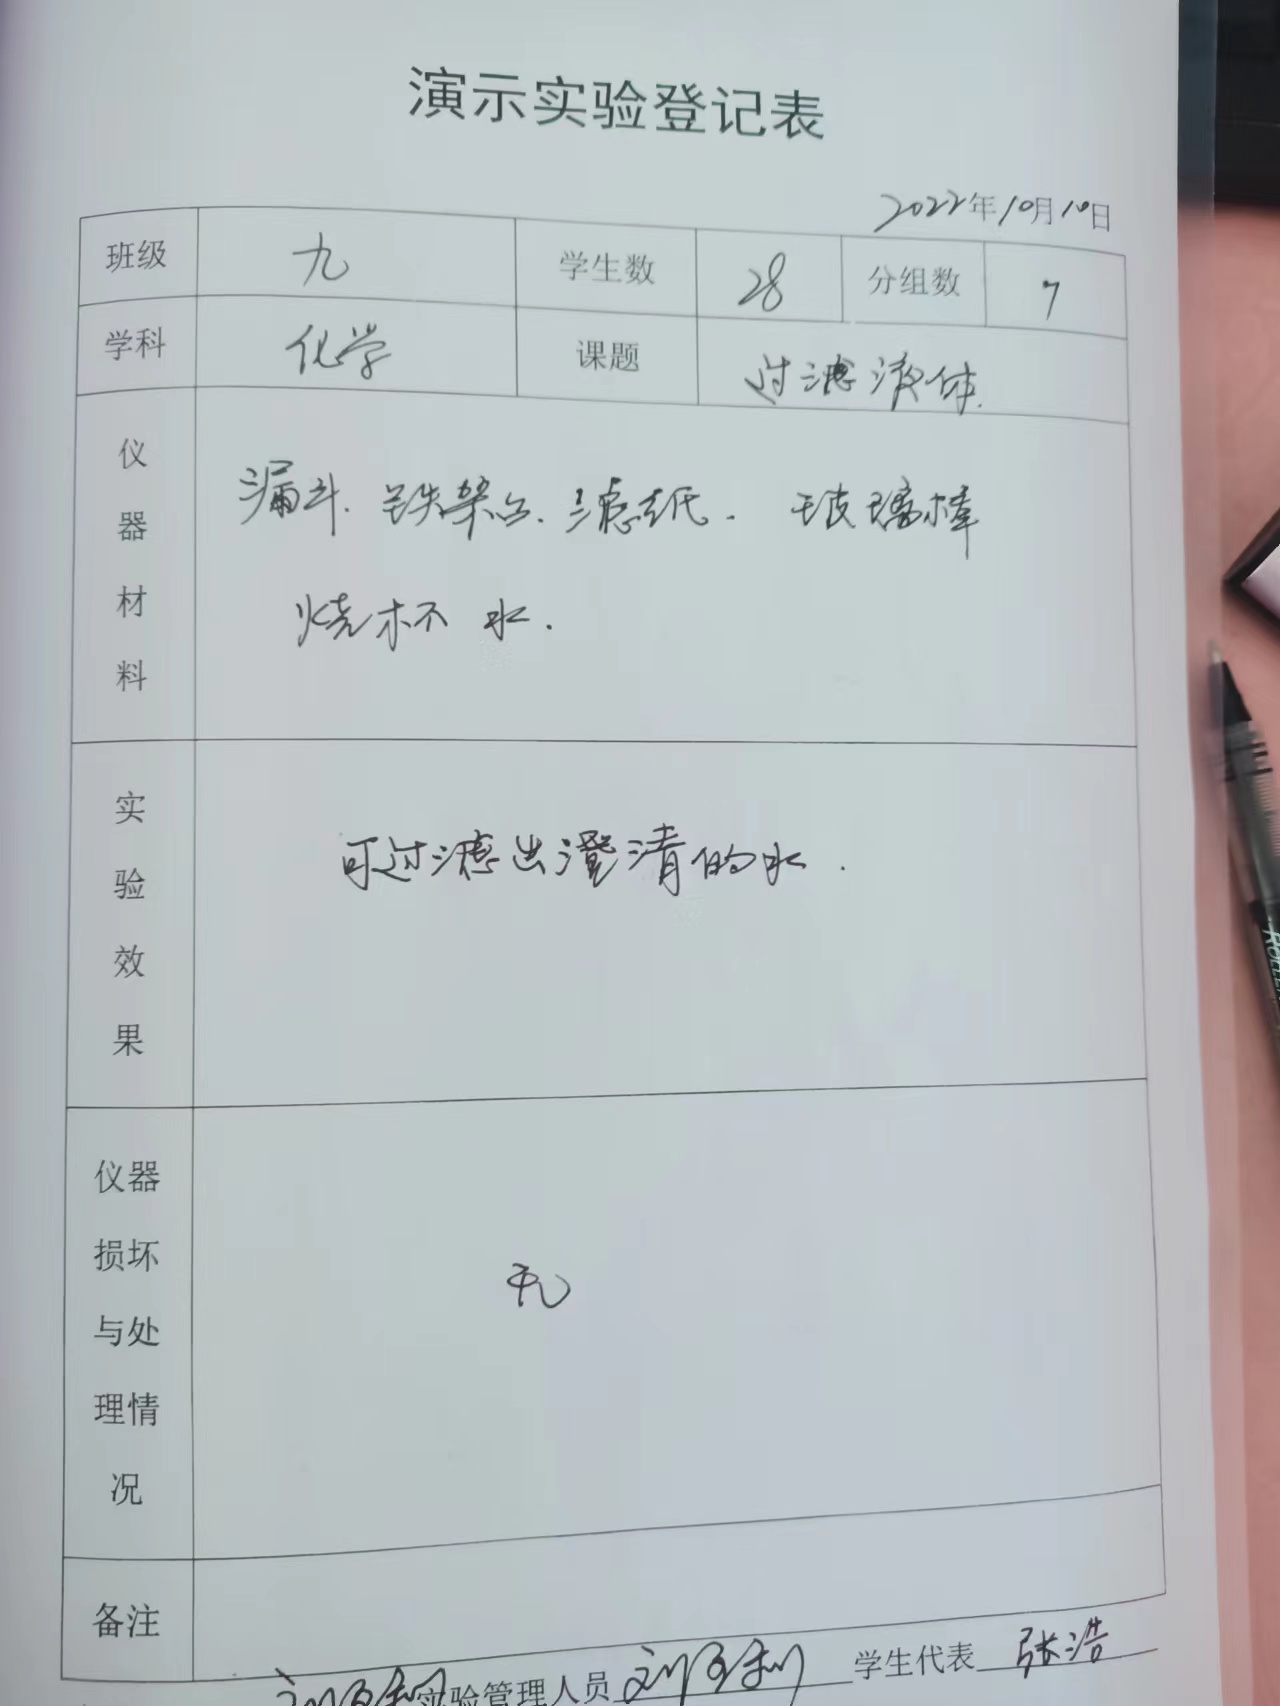 演示实验登记表
2022年10月10日
班级 九 学生数 28 分组数 7
学科 化学 课题 过滤液体.
仪器材料 漏斗. 铁架台. 滤纸. 玻璃棒
烧杯 水.
实验效果 可过滤出澄清的水.
仪器损坏与处理情况 无
备注
实验管理人员 学生代表 张浩